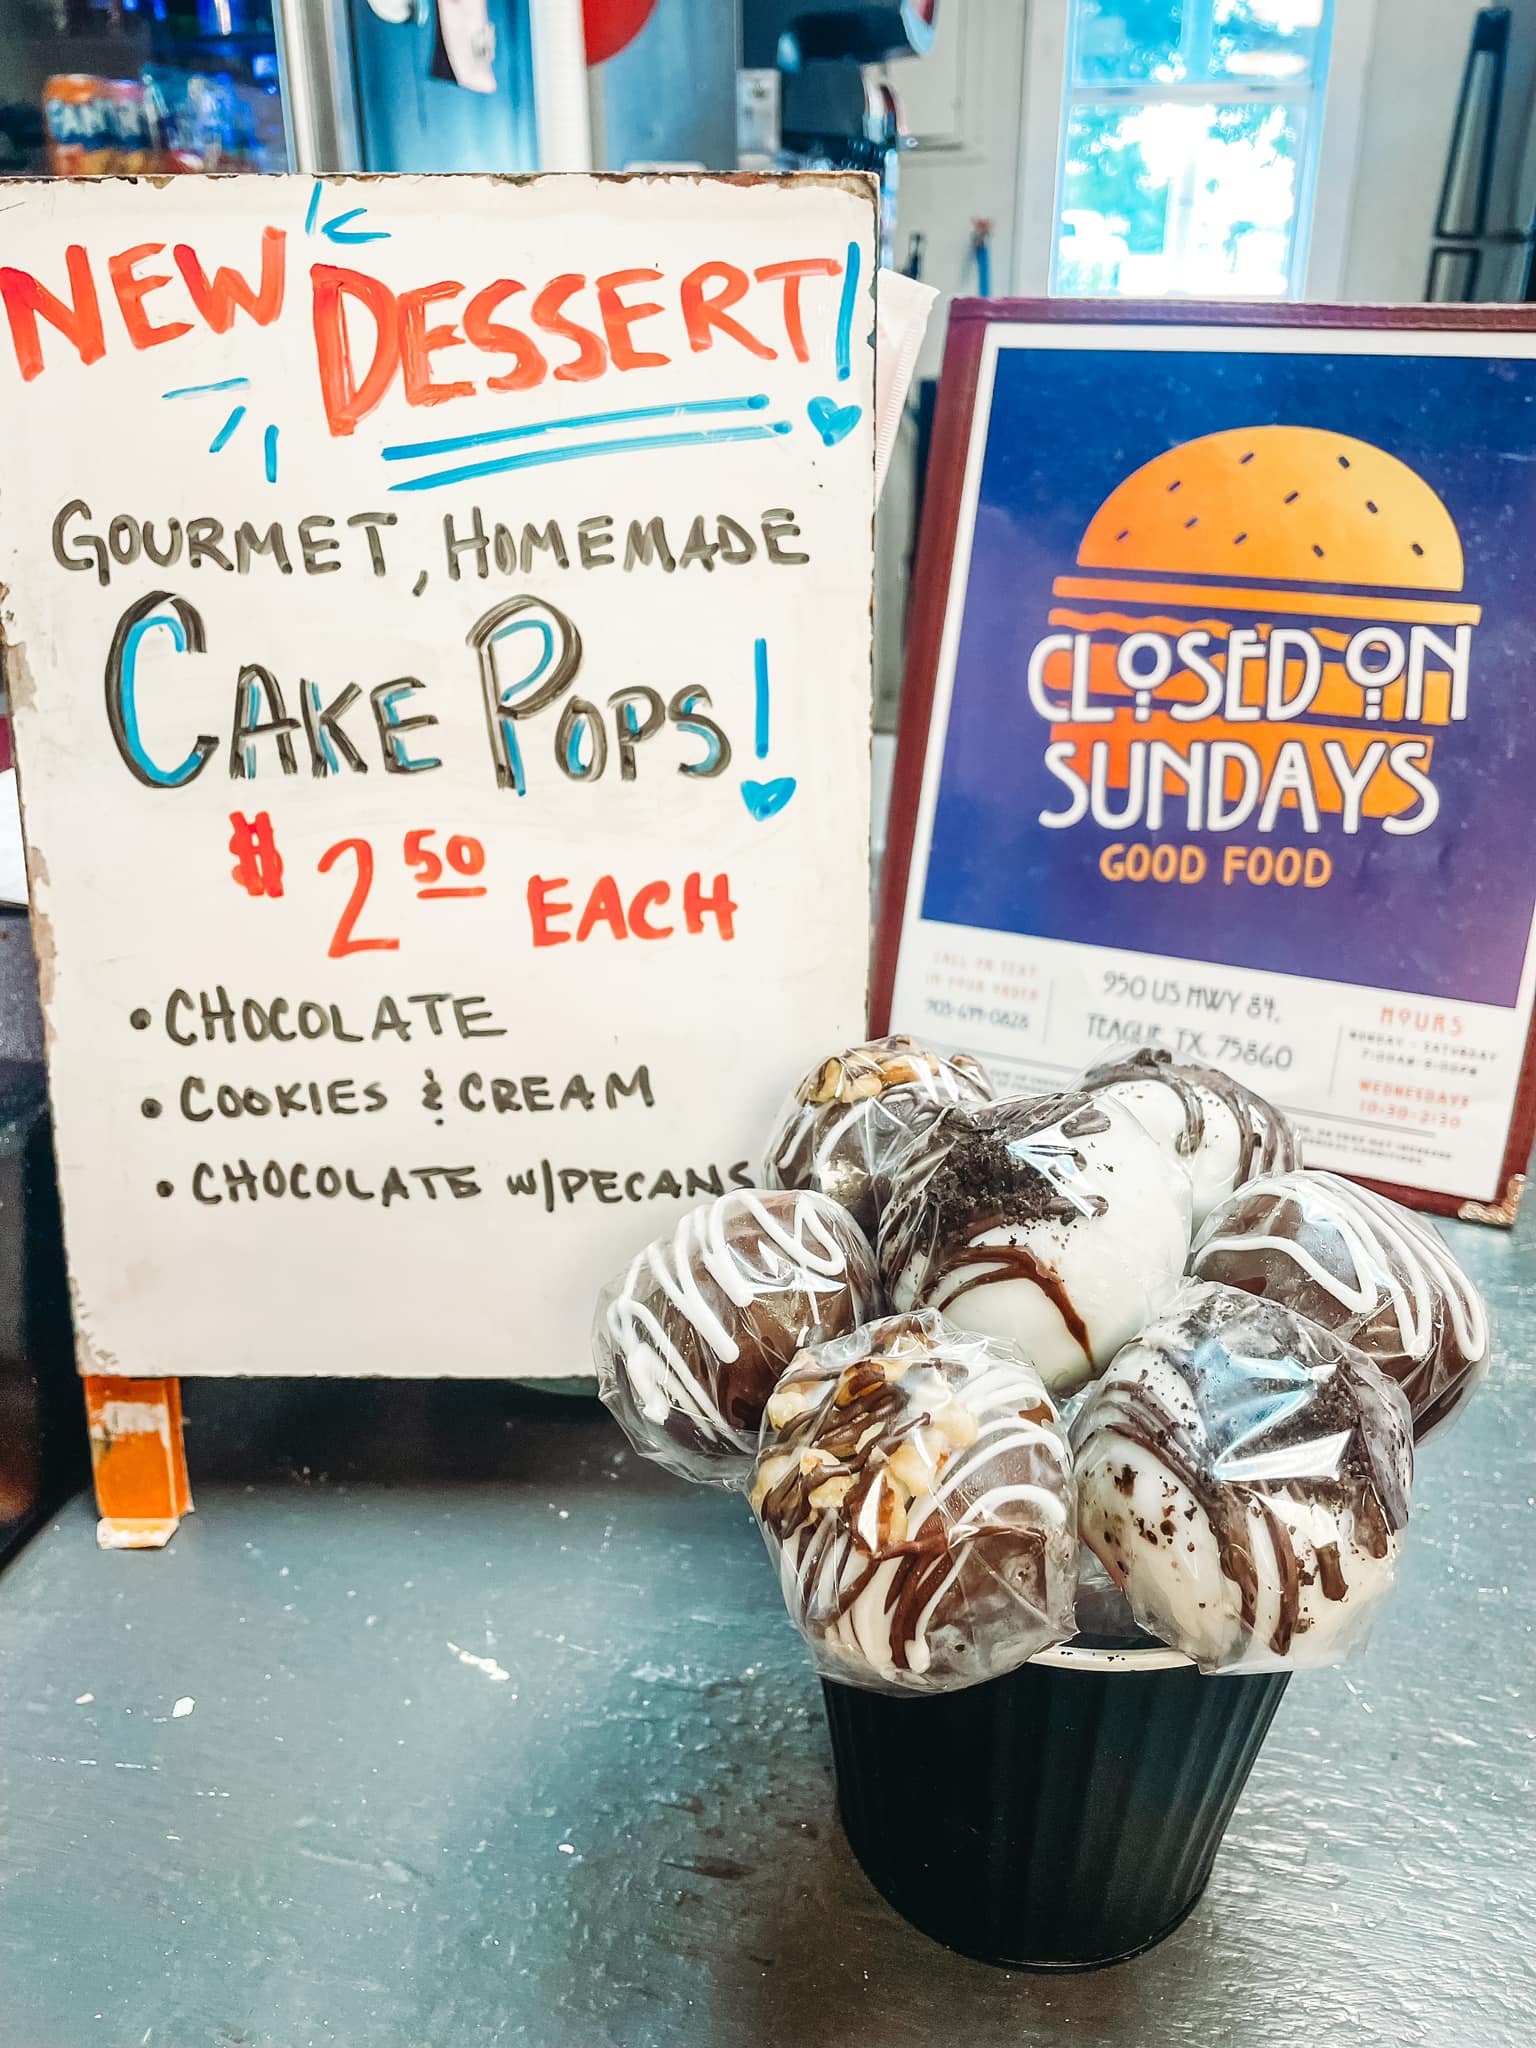 NEW DESSERT!
GOURMET, HOMEMADE
CAKE POPS!
$2.50 EACH
• CHOCOLATE
• COOKIES & CREAM
• CHOCOLATE W/PECANS
CLOSED ON
SUNDAYS
GOOD FOOD
CALL OR TEXT
IN YOUR ORDER
950 US HWY 84,
TEAGUE, TX, 75860
HOURS
MONDAY - SATURDAY
WEDNESDAYS
10:30-2:30